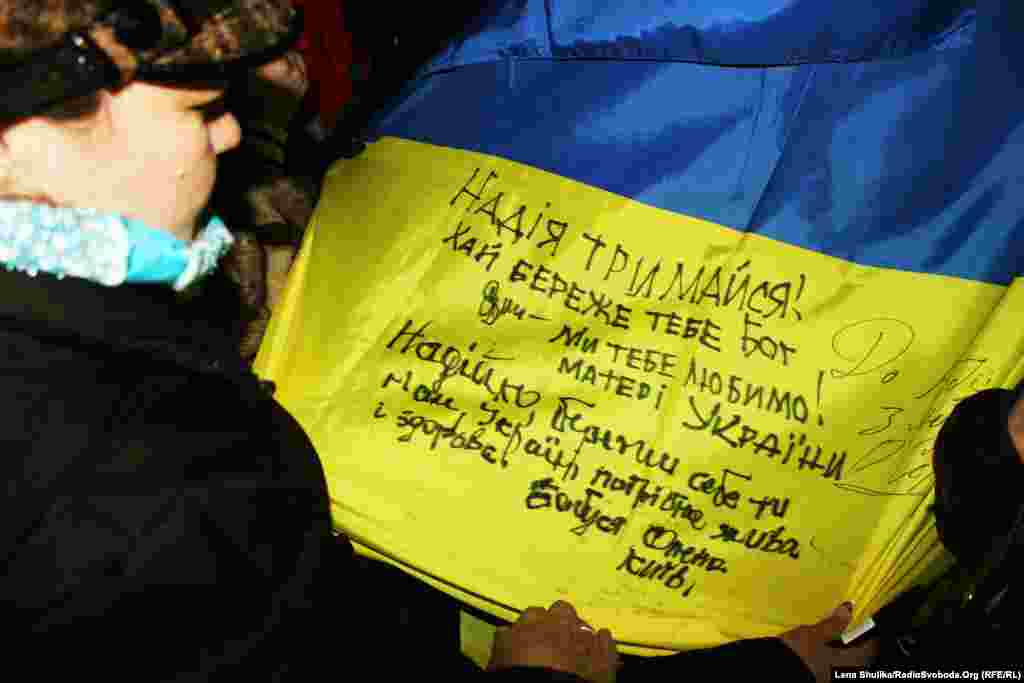 Надія тримайся!
Хай береже тебе Бог
Ми тебе любимо!
матері України
Надійко бережи себе ти
нам, Україні потрібна жива
і здорова!
бабуся Олена
Київ,
До
З
Lena Shulika/RadioSvoboda.Org (RFE/RL)